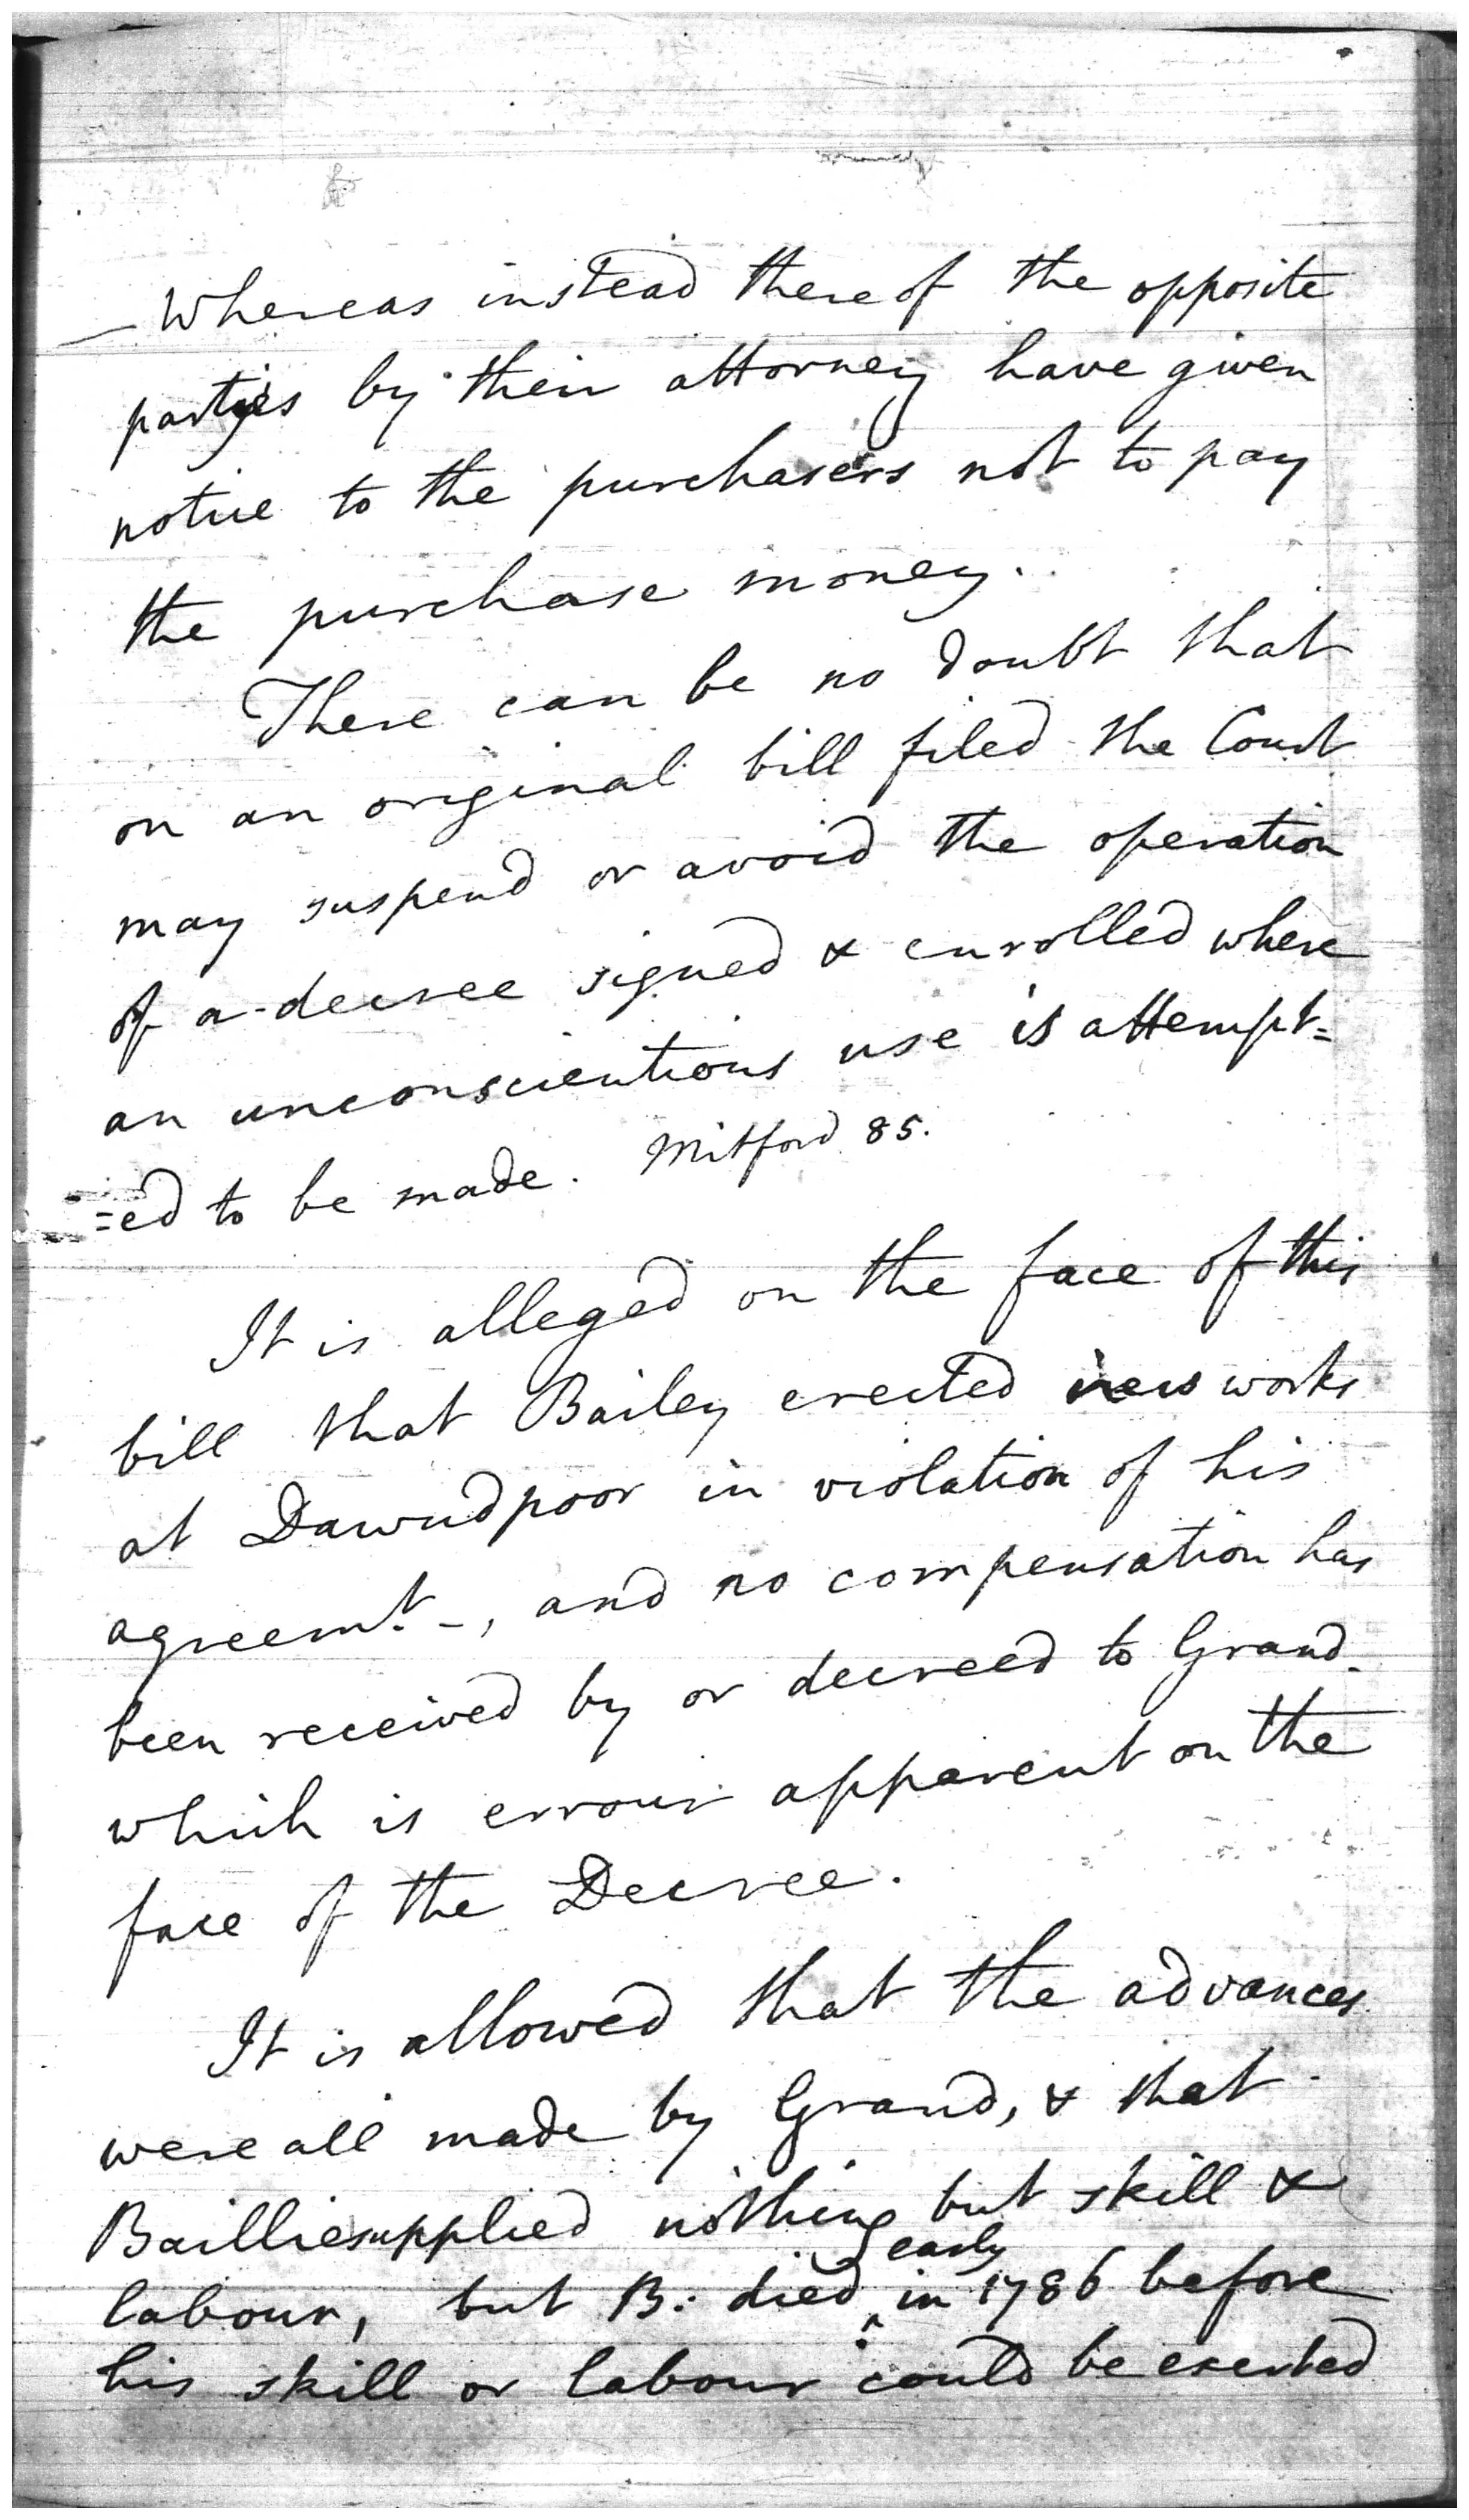 — Whereas instead thereof the opposite
parties by their attorney have given
notice to the purchasers not to pay
the purchase money.
There can be no doubt that
on an original bill filed the Court
may suspend or avoid the operation
of a decree signed & enrolled where
an unconscientious use is attempt=
=ed to be made. Mitford 85.
It is alleged on the face of this
bill that Bailey erected new works
at Dawudpoor in violation of his
agreemt. -, and no compensation has
been received by or decreed to Grand
which is errour apparent on the
face of the Decree.
It is allowed that the advances
were all made by Grand, & that
Baillie supplied nothing but skill &
labour, but B: died ^ early in 1786 before
his skill or labour could be exerted